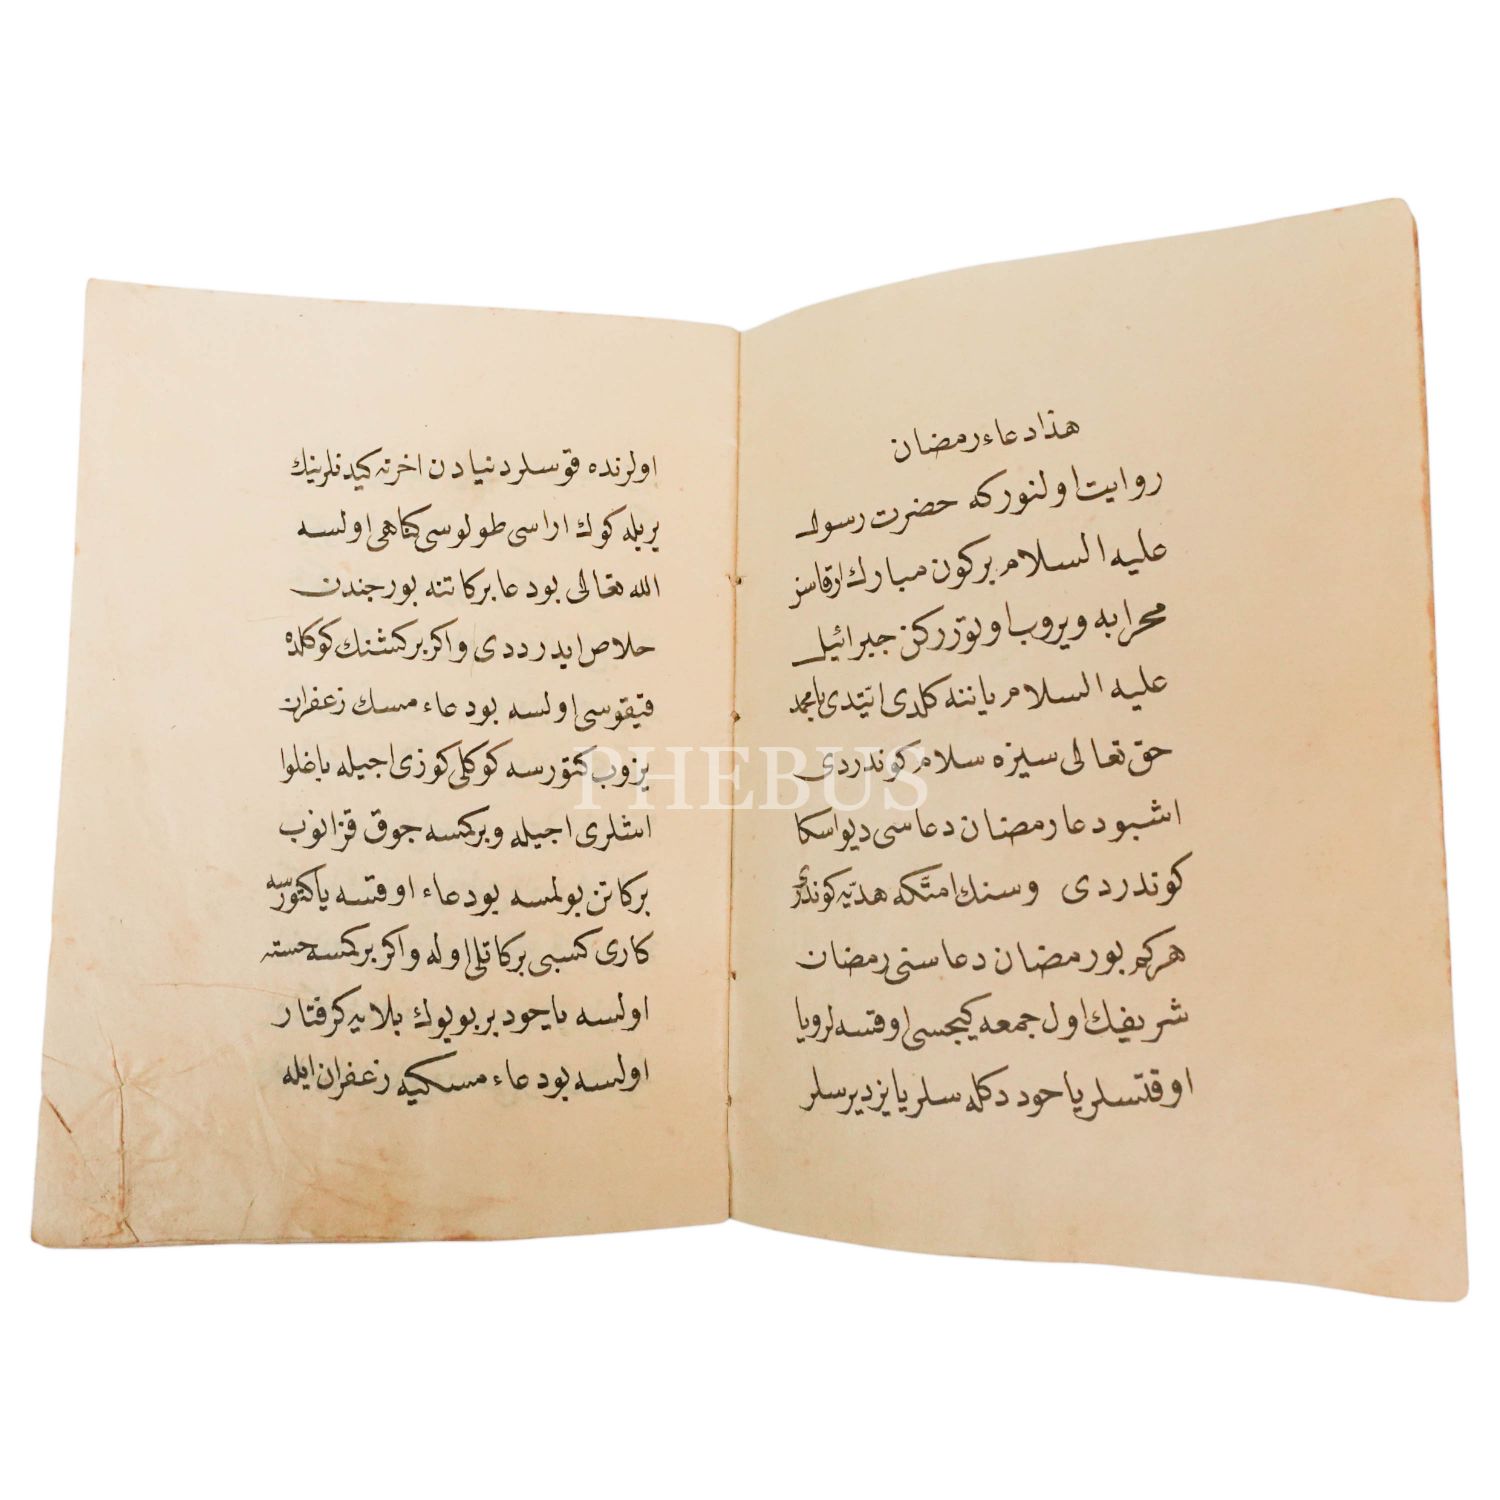 هذا دعاء رمضان
روايت اولنور كه حضرت رسول
عليه السلام بركون مبارك ارقاسز
محرابه ويروب اوتوررکن جبرائيل
عليه السلام ياننه كلدى ايتدى يا محمد
حق تعالى سيزه سلام كوندردى
اشبو دعا رمضان دعاسى ديو اسكا
كوندردى وسنك امتكه هديه كوندردى
هركم بو رمضان دعاسنى رمضان
شريفك اول جمعه كيجسى اوقتسه لرويا
اوقتسلر يا حود دكله سلر يا يزديرسلر
اولرنده قوسلر دنيادن اخرته كيدنلرينك
يريله كوك اراسى طولوسى كناهى اولسه
الله تعالى بو دعا بركاتنه بورجندن
حلاص ايدرددى واكر بركشنك كوكلده
قيقوسى اولسه بو دعاء مسك زعفران
يزوب كتورسه كوكلى كوزى اجيله باغلوا
اشلرى اجيله وبركسه جوق قزانوب
بركاتن بولمسه بو دعاء اوقتسه يا كتورسه
كارى كسبى بركاتلى اوله واكر بركسه حسته
اولسه ياحود بر بويوك بلايه كرفتار
اولسه بو دعاء مسكيه زعفران ايله
PHEBUS